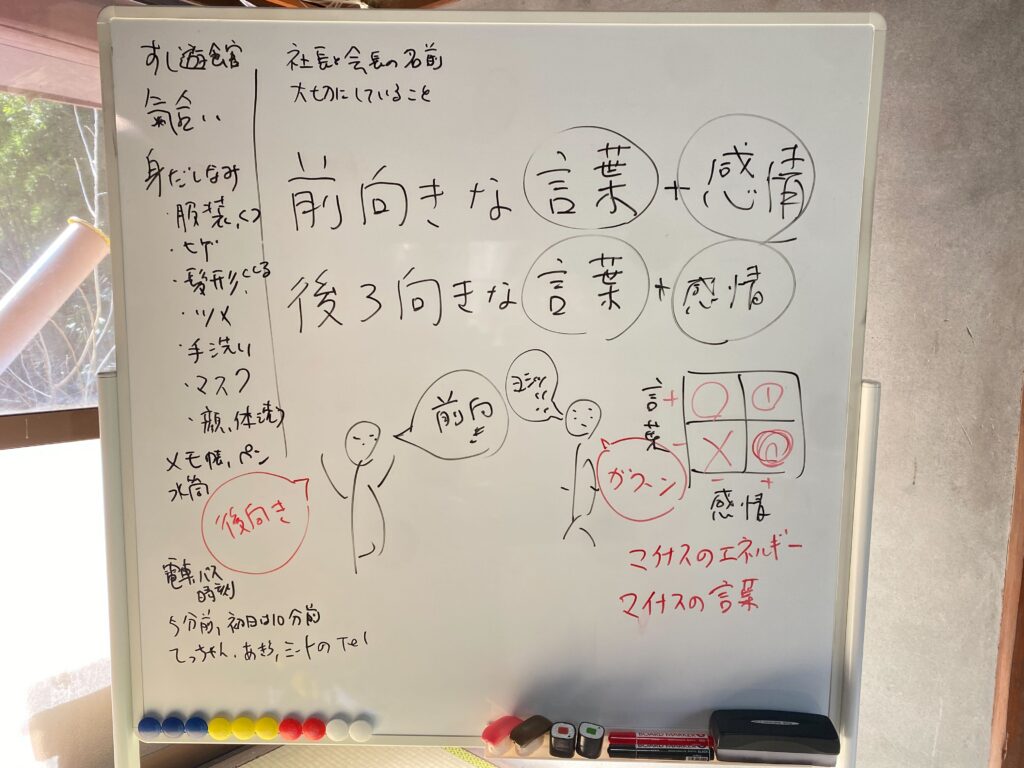 すし遊館
氣合い
身だしなみ
・服装、くつ
・ヒゲ
・髪形、くしる
・ツメ
・手洗い
・マスク
・顔、体洗う
メモ帳、ペン
水筒
電車、バス
時刻
5分前、初日は10分前
てっちゃん、あきら、ミートのTel
社長と会長の名前
大切にしていること
前向きな言葉+感情
後ろ向きな言葉+感情
前向き
ヨシッ!!
後向き
ガクーン
言葉
+
-
○
①
×
-
+
感情
マイナスのエネルギー
マイナスの言葉
BOARD MARKER
BOARD MARKER